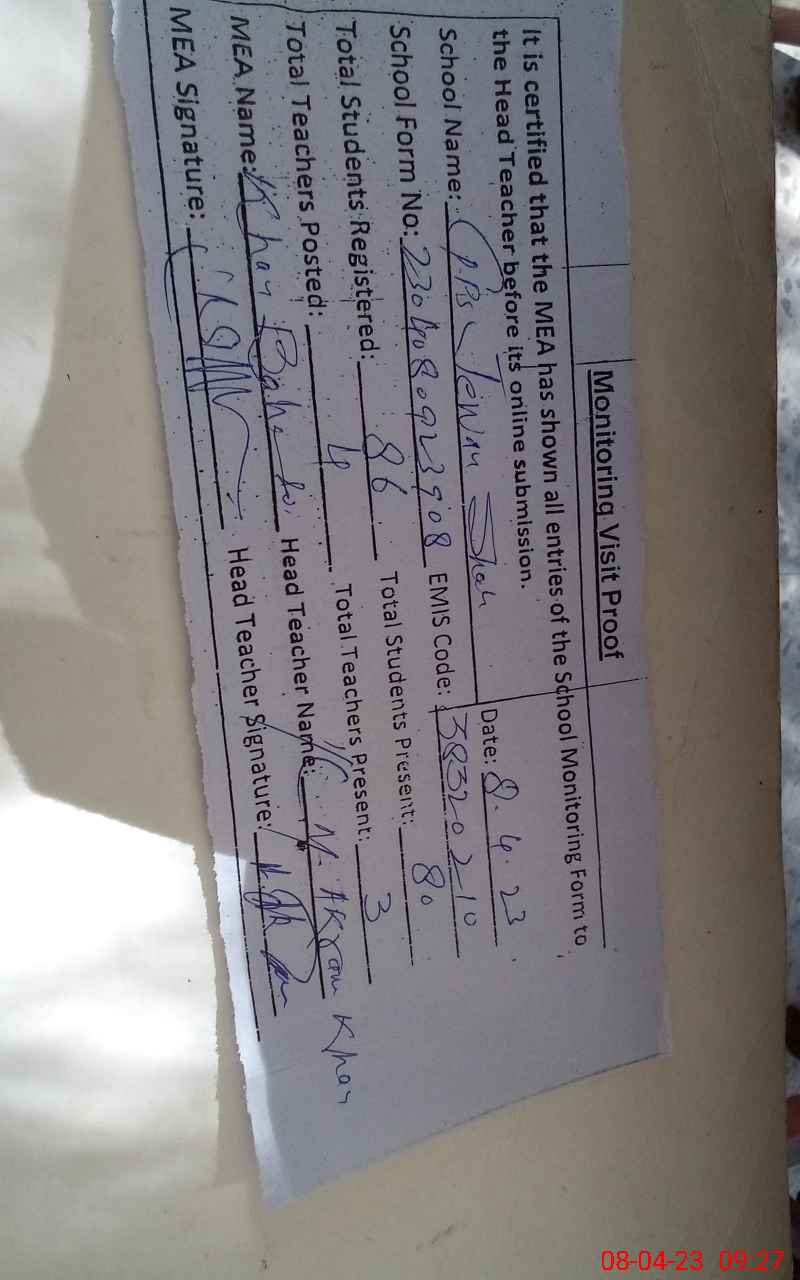 Monitoring Visit Proof
It is certified that the MEA has shown all entries of the School Monitoring Form to
the Head Teacher before its online submission.
Date: 8.4.23
School Name: GPS Shah
School Form No: 2304080923908 EMIS Code: 38320210
Total Students Registered: 86 Total Students Present: 80
Total Teachers Posted: 4 Total Teachers Present: 3
MEA Name: Khan Bahadar Head Teacher Name: M. Akram Khan
MEA Signature: Head Teacher Signature:
08-04-23 09:27